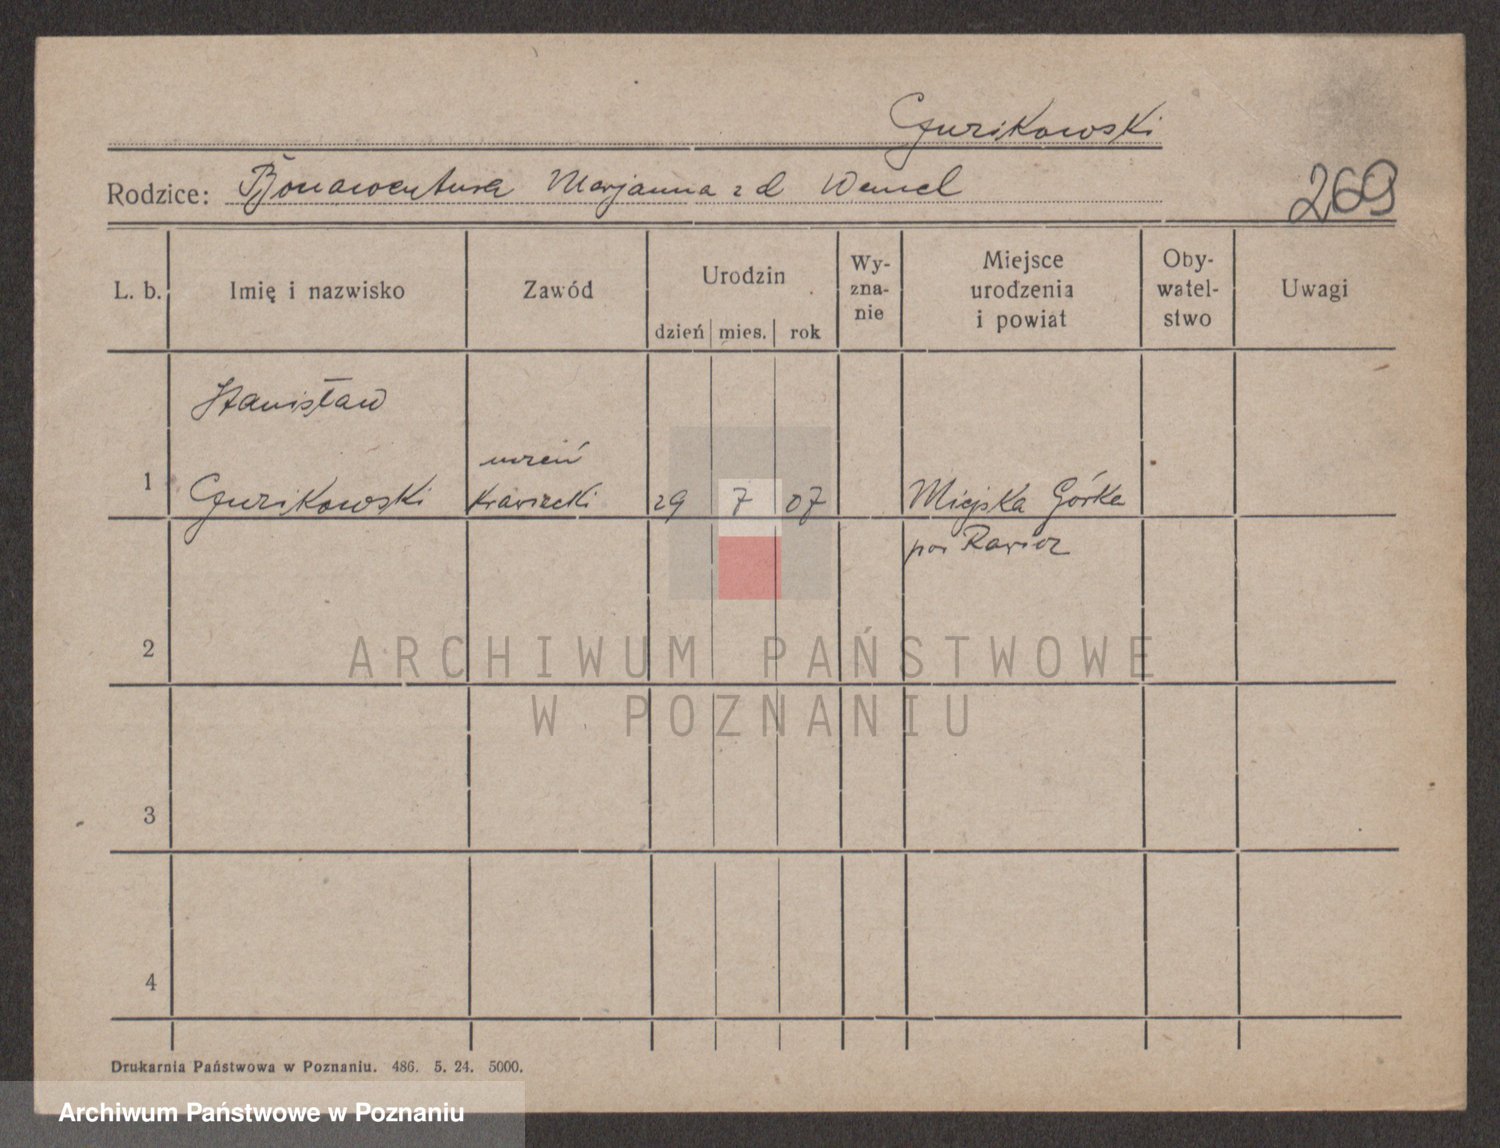 Gurikowski
Rodzice: Bonawentura Marjanna z d Wencel
269
L. b. Imię i nazwisko Zawód Urodzin dzień mies. rok Wy-zna-nie Miejsce urodzenia i powiat Oby-watel-stwo Uwagi
Stanisław
uczeń
1 Gurikowski krawiecki 29 7 07 Miejska Górka
pow Rawicz
2
ARCHIWUM PAŃSTWOWE
W POZNANIU
3
4
Drukarnia Państwowa w Poznaniu. 486. 5. 24. 5000.
Archiwum Państwowe w Poznaniu